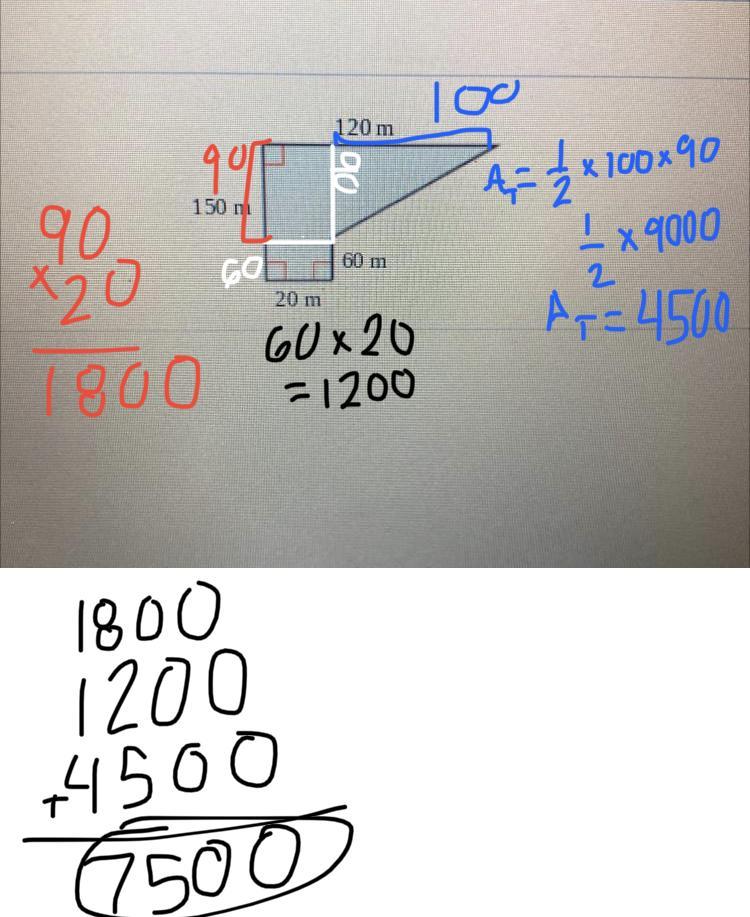 100
120 m
90
90
A_T = 1/2 × 100 × 90
150 m
1/2 × 9000
A_T = 4500
90
× 20
1800
60
60 m
20 m
60 × 20
= 1200
1800
1200
+ 4500
7500